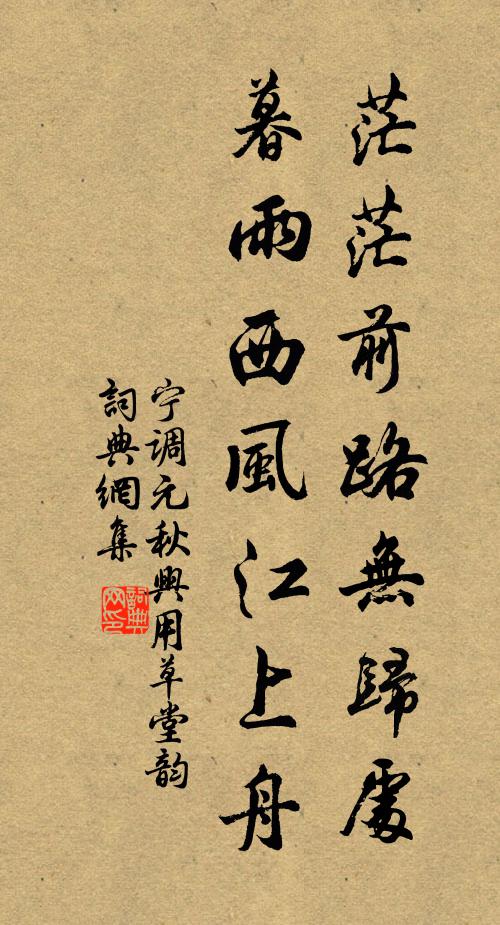 茫茫前路無歸處
暮雨西風江上舟
宁調元秋興用草堂韵
詞典網集
詞典
网印